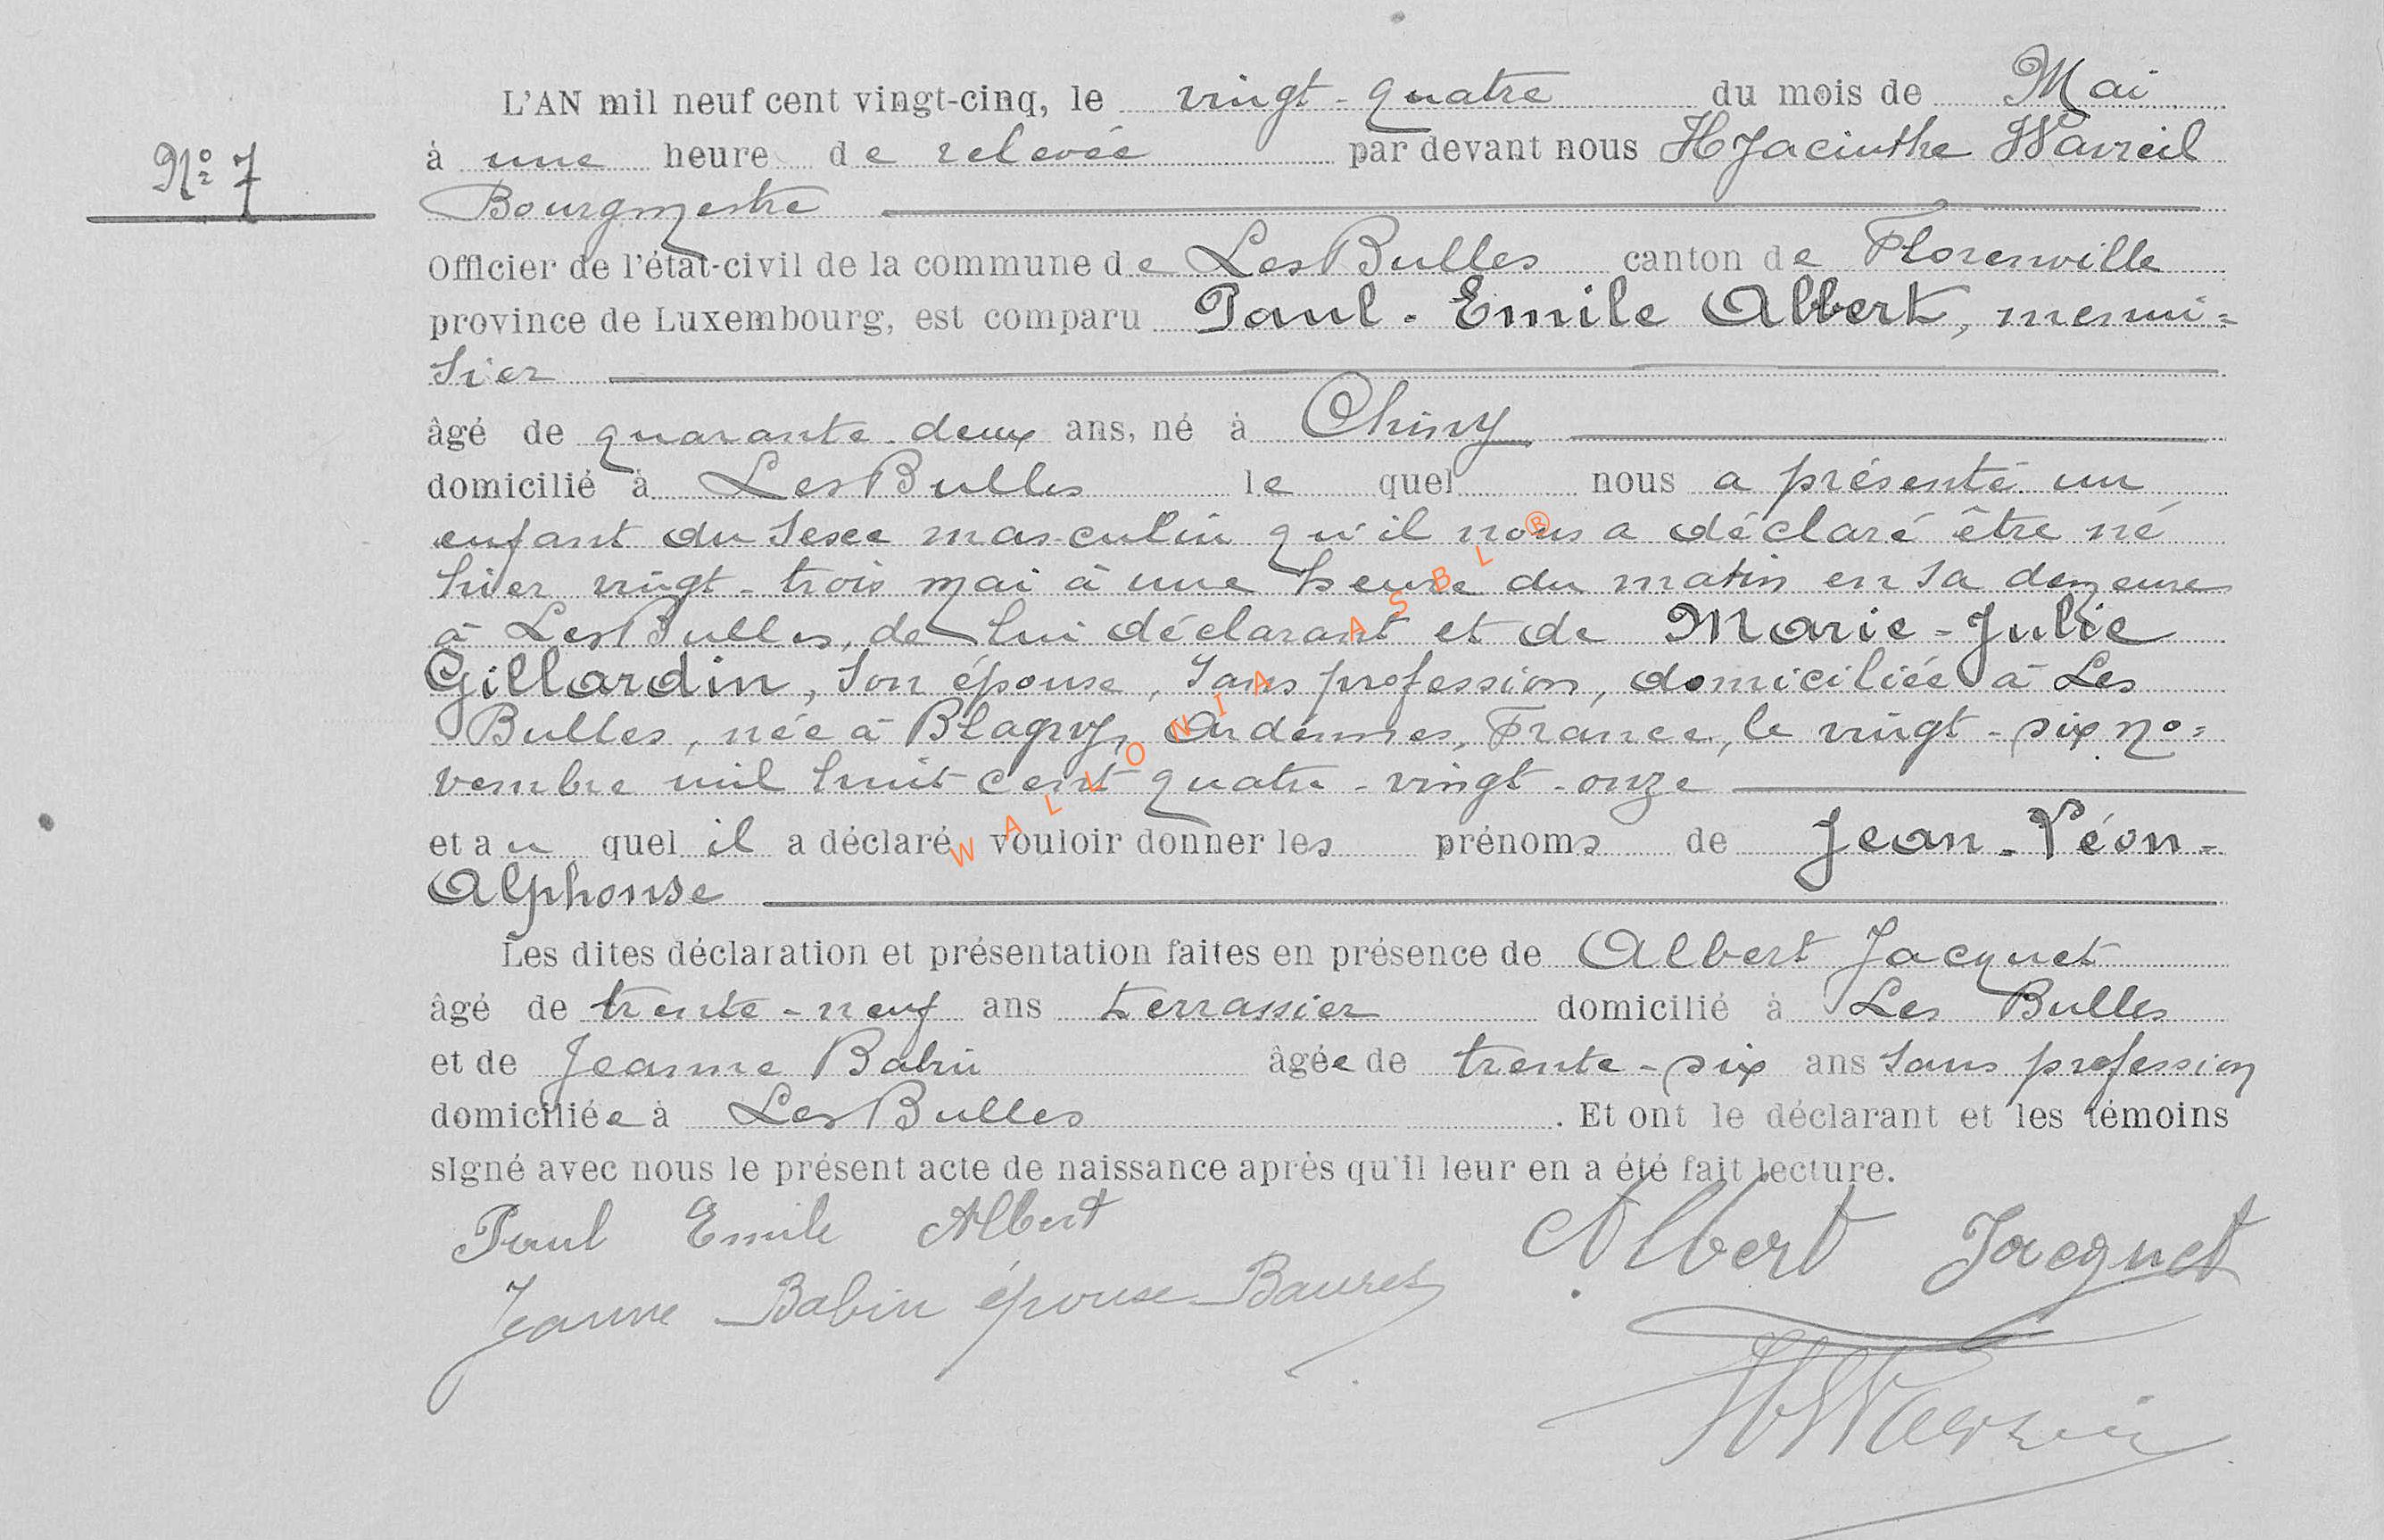 L'AN mil neuf cent vingt-cinq, le vingt-quatre du mois de Mai
N° 7
à une heure de relevée par devant nous Hyacinthe
Bourgmestre
Officier de l'état-civil de la commune de Les Bulles canton de Florenville
province de Luxembourg, est comparu Paul-Emile Albert, menui=
sier
âgé de quarante-deux ans, né à Chiny
domicilié à Les Bulles le quel nous a présenté un
enfant du sexe masculin qu'il nous a déclaré être né
hier vingt-trois mai à une heure du matin en sa demeure
à Les Bulles, de lui déclarant et de Marie-Julie
Gillardin, son épouse, sans profession, domiciliée à Les
Bulles, née à Blagny, Ardennes, France, le vingt-six no=
vembre mil huit cent quatre-vingt-onze
et au quel il a déclaré vouloir donner les prénoms de Jean-Léon-
Alphonse
Les dites déclaration et présentation faites en présence de Albert Jacquet
âgé de trente-neuf ans terrassier domicilié à Les Bulles
et de Jeanne Babin âgée de trente-six ans sans profession
domiciliée à Les Bulles. Et ont le déclarant et les témoins
signé avec nous le présent acte de naissance après qu'il leur en a été fait lecture.
Paul Emile Albert
Albert Jacquet
Jeanne Babin épouse
WALLONIA ASBL ®